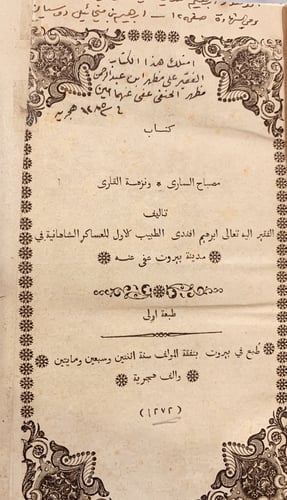 ابراهيم
صفحة
امتلك هذا الكتاب
الفقير علي مظهر ابن عبد الرحمن
مظهر الحنفي عفى عنهما
هجريه
كتاب
مصباح السارى * ونزهة القارى
تأليف
الفقير اليه تعالى ابرهيم افندى الطبيب الاول للعساكر الشاهانية فى
مدينة بيروت عفى عنه
طبعة اولى
طبع في بيروت بنفقة المولف سنة اثنتين وسبعين ومايتين
والف هجرية
(١٢٧٢)